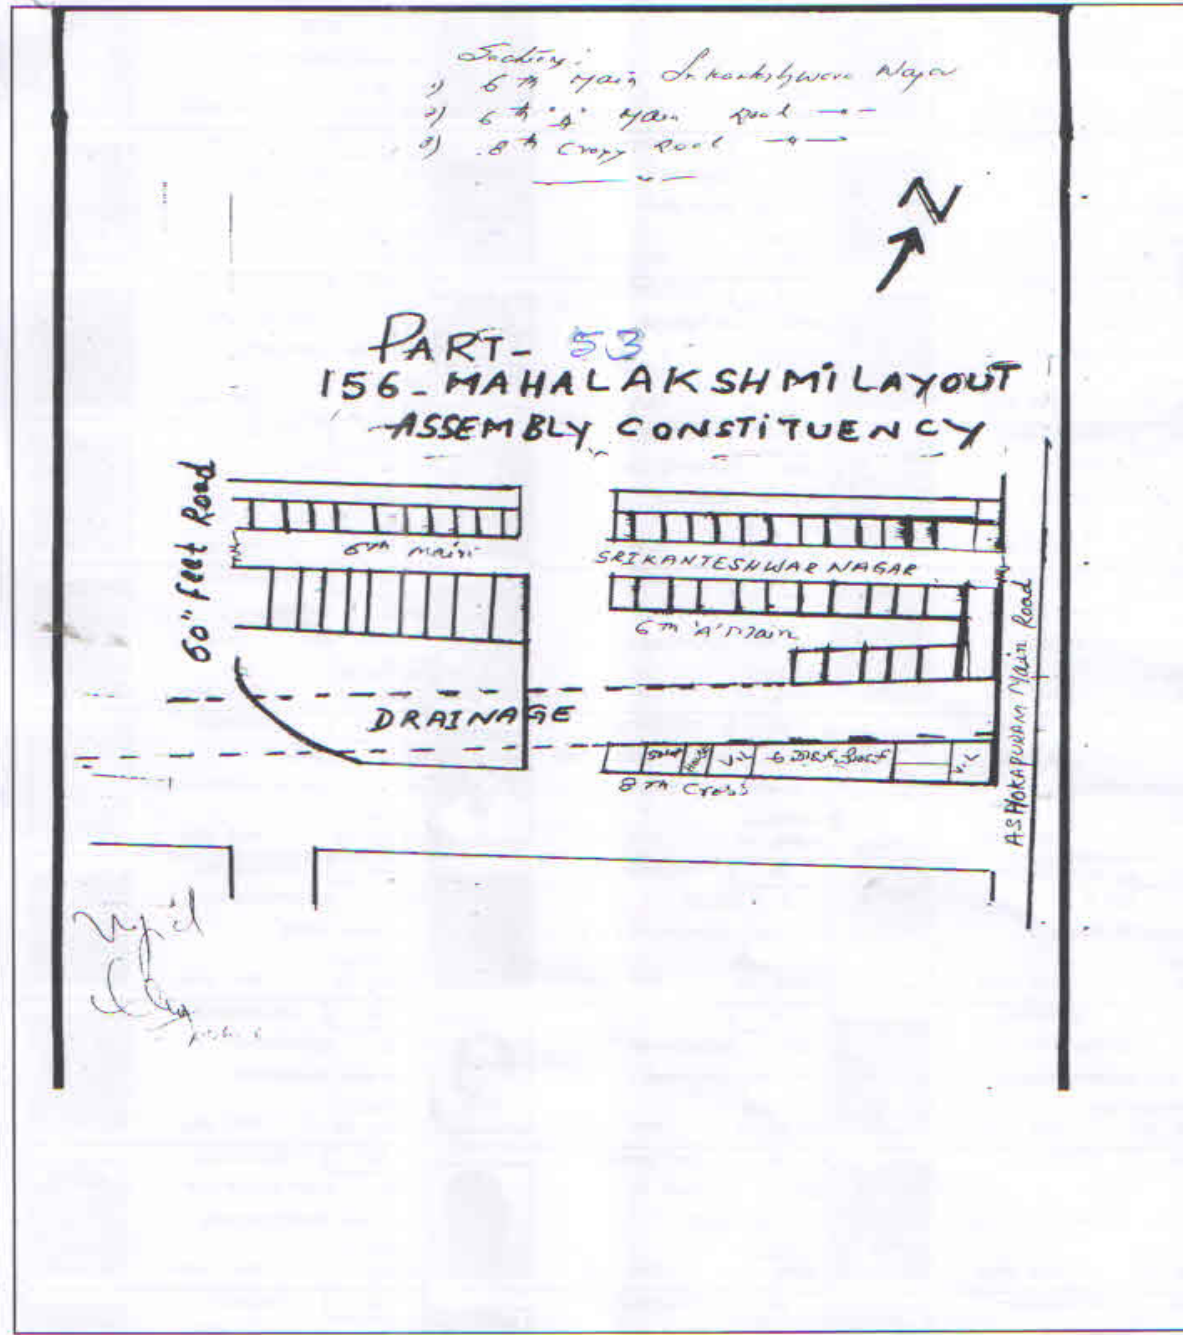 Sections:
1) 6th Main Srikanteshwara Nagar
2) 6th "A" Main Road —"—
3) 8th Cross Road —"—
N
PART- 53
156-MAHALAKSHMi LAYOUT
ASSEMBLY CONSTiTUENCY
60" feet Road
6th main
SRIKANTESHWAR NAGAR
6th 'A' main
DRAINAGE
V.L
V.L
8th Cross
ASHOKAPURAM Main Road